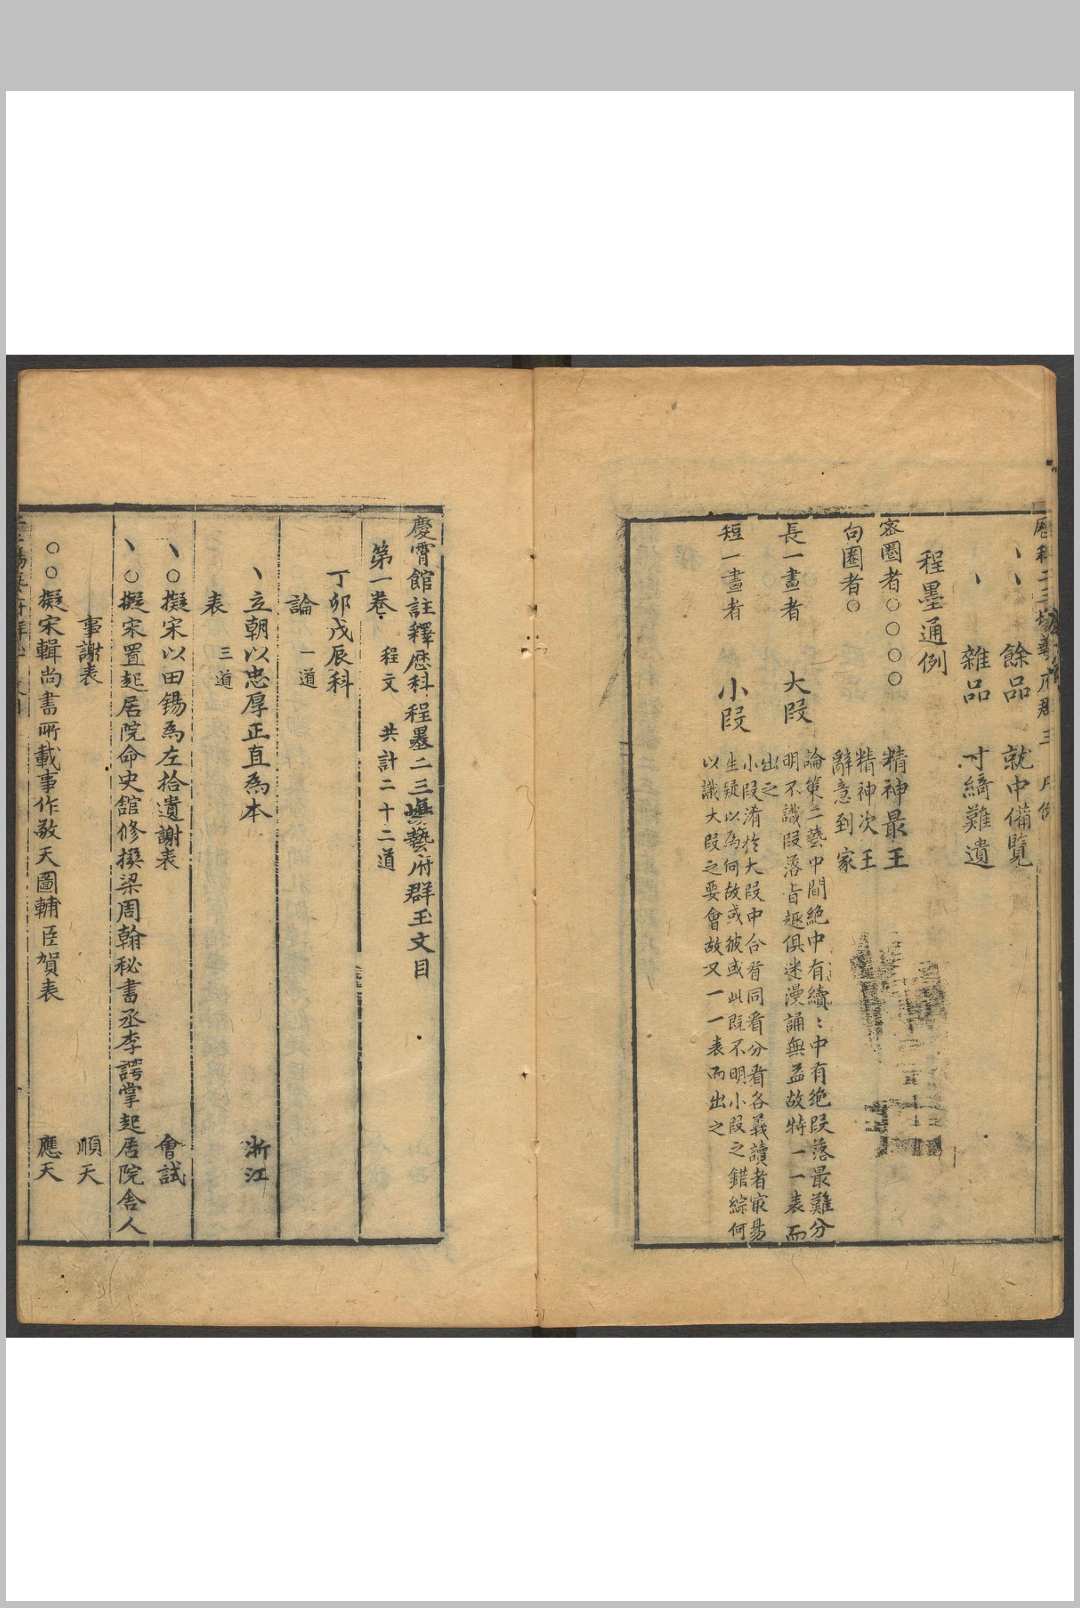 丶丶 餘品 就中備覽
丶 雜品 寸綺難遺
程墨通例
密圈者○○○○ 精神最王
句圈者○ 精神次王
辭意到家
長一畫者 大段
論策二藝中間絶中有續﹕中有絶段落最難分
明不識段落旨趣俱迷漫誦無益故特一一表而
出之
短一畫者 小段
小段淆於大段中合看同看分看各義讀者㝡易
生疑以為何故或彼或此既不明小段之錯綜何
以識大段之要會故又一一表而出之
慶霄館註釋歴科程墨二三塲藝府群玉文目
第一卷 程文 共計二十二道
丁卯戊辰科
論 一道
丶立朝以忠厚正直為本 浙江
表 三道
丶○擬宋以田錫為左拾遺謝表 會試
丶○擬宋置起居院命史舘修撰梁周翰秘書丞李諤掌起居院舍人
事謝表 順天
○○擬宋輯尚書所載事作敬天圖輔臣賀表 應天